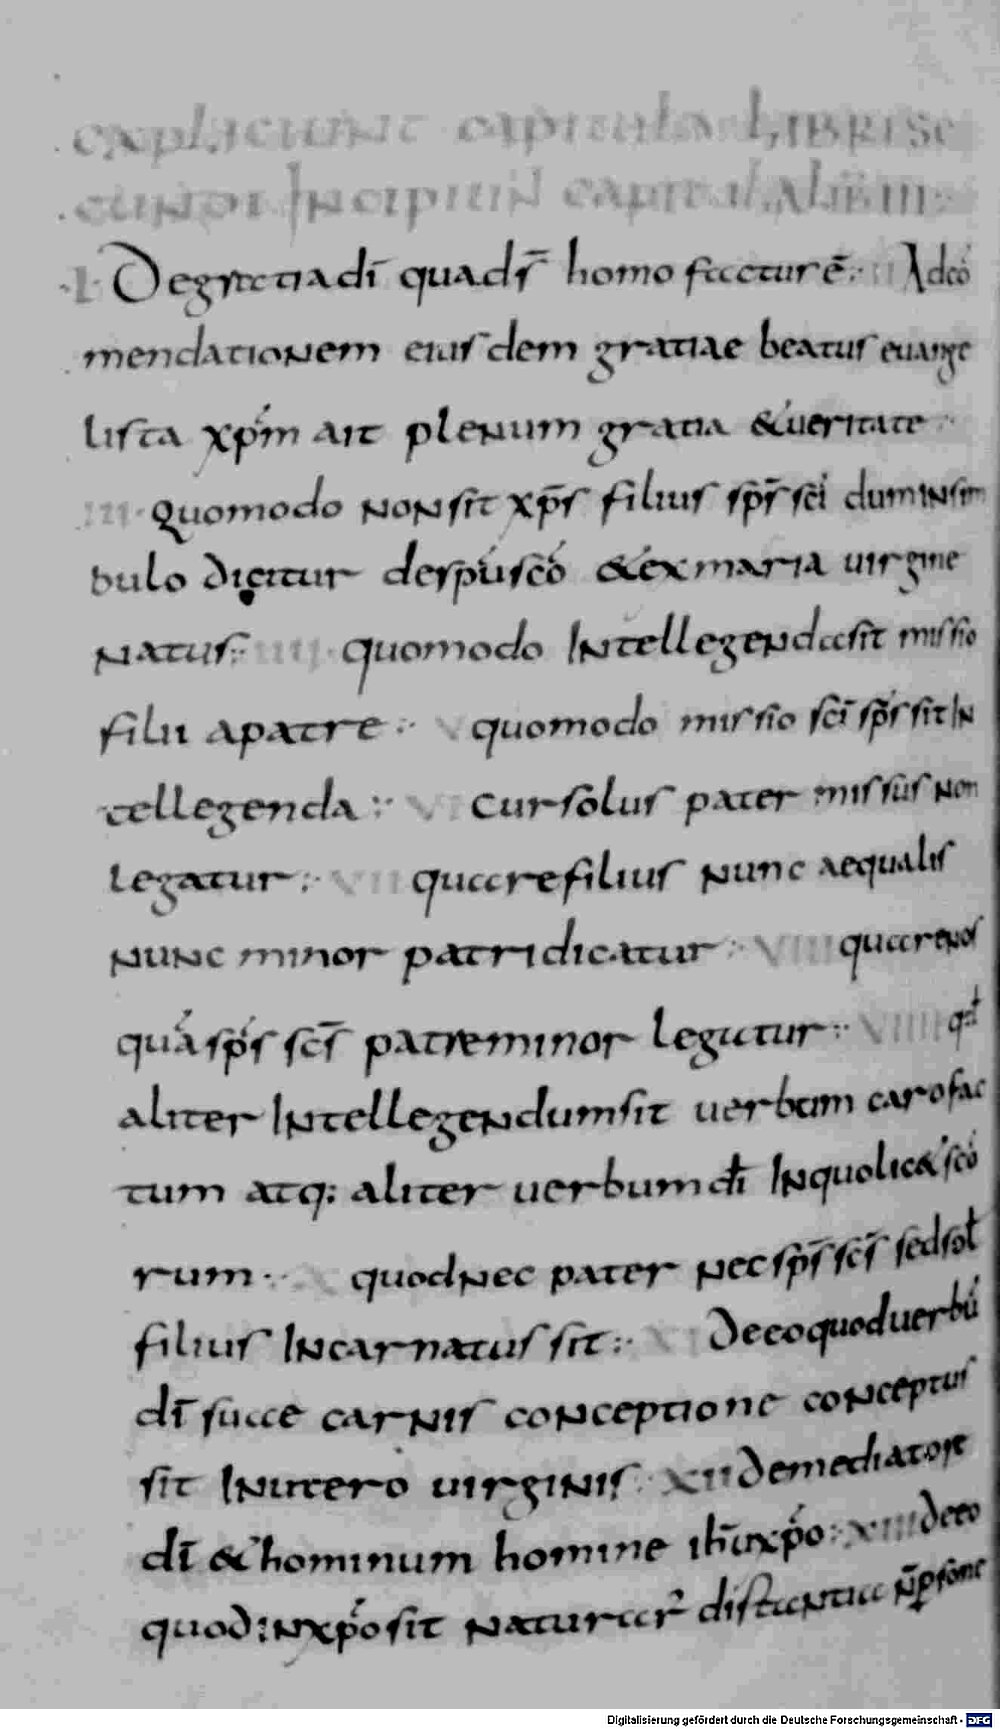 expliciunt capitula LIBRI SE
CUNDI INcipiuN capitul A LiB III:
I. De gratia dī qua ds̄ homo factur ē:· II Ad cō
mendationem eiusdem gratiae beatus euange
lista xp̄m ait plenum gratia & ueritate
III· quomodo non sit xp̄s filius sps̄ sc̄i dum in sim
bulo dicitur de spū sc̄o & ex maria uirgine
natus:· IIII· quomodo Intellegenda sit missio
filii a patre:· V quomodo missio sc̄i sps̄ sit In
tellegenda:· VI cur solus pater missus non
legatur:· VII quare filius nunc aequalis
nunc minor patri dicatur:· VIII quare nos
quā sps̄ sc̄s patre minor legatur:· VIIII qđ
aliter Intellegendum sit uerbum caro fac
tum atq: aliter uerbum dī In quolic& sc̄o
rum:· X quod nec pater nec sps̄ sc̄s sed sol
filius Incarnatus sit:· XI De eo quod uerbū
dī suae carnis conceptione conceptus
sit In utero uirginis· XII de mediatore
dī & hominum homine ihū xp̄o:· XIII de eo
quod in xp̄o sit naturar distantia n̄